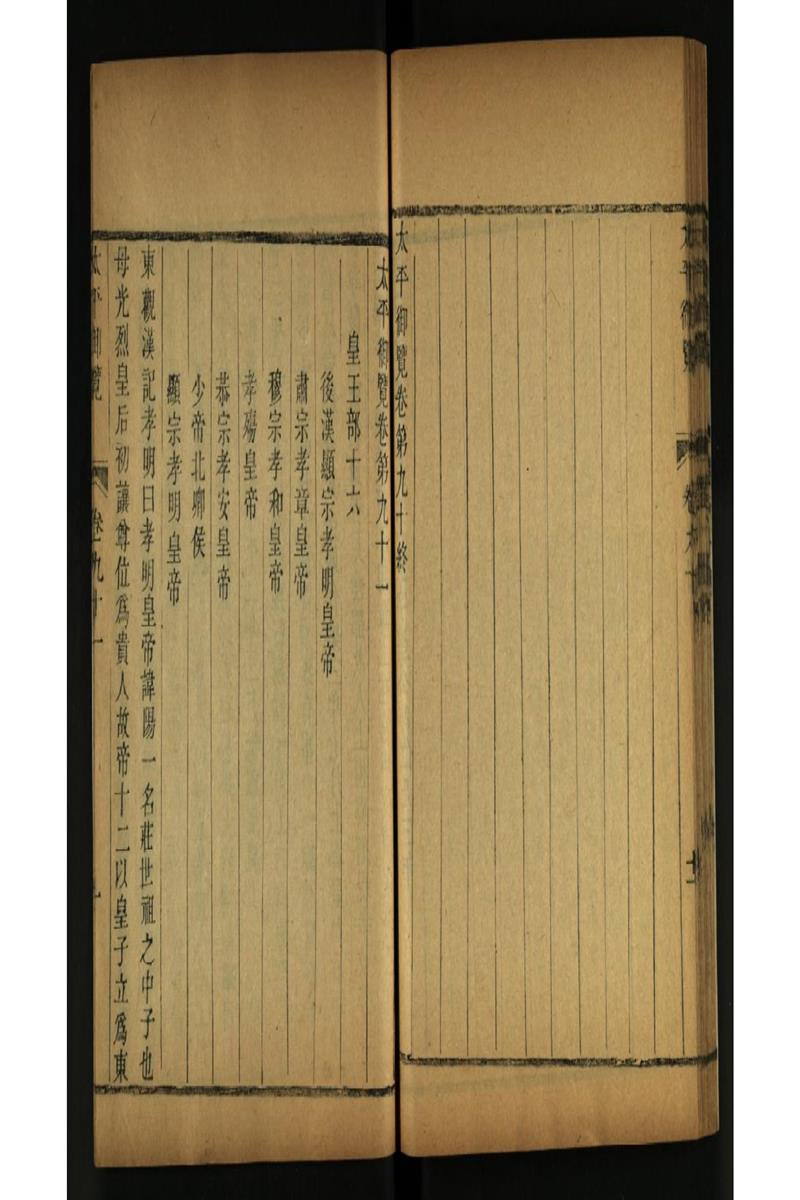 太平御覽
卷九十
十一
太平御覽卷第九十終
太平御覽卷第九十一
皇王部十六
後漢顯宗孝明皇帝
肅宗孝章皇帝
穆宗孝和皇帝
孝殤皇帝
恭宗孝安皇帝
少帝北鄉侯
顯宗孝明皇帝
東觀漢記孝明曰孝明皇帝諱陽一名莊世祖之中子也
母光烈皇后初讓尊位為貴人故帝十二以皇子立為東
太平御覽
卷九十一